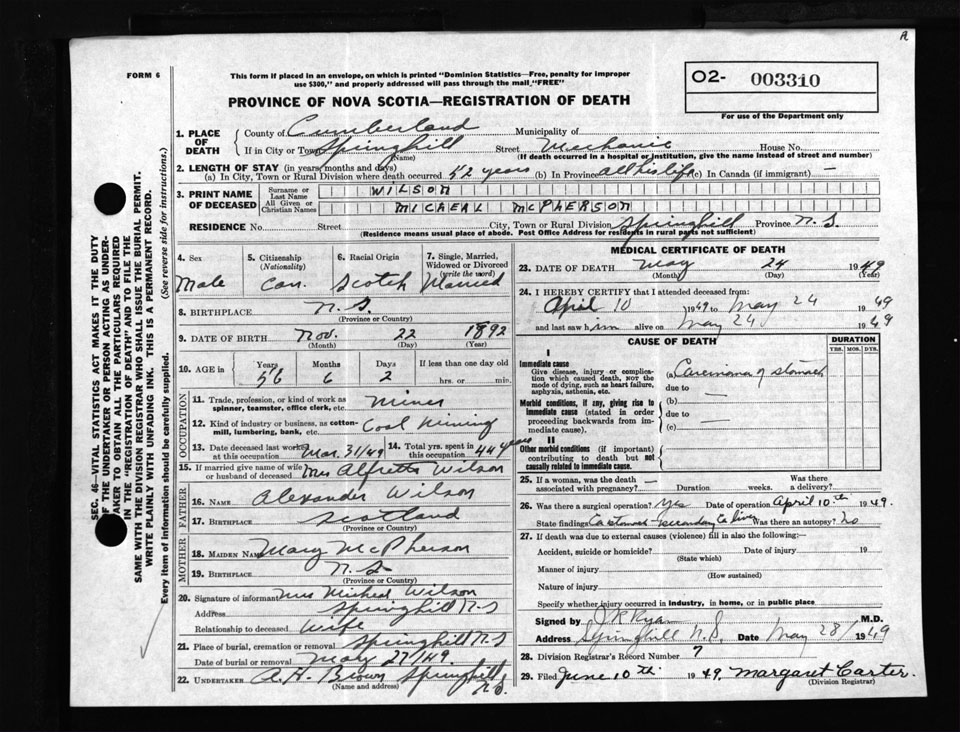 A
FORM 6
This form if placed in an envelope, on which is printed "Dominion Statistics—Free, penalty for improper
use $300," and properly addressed will pass through the mail "FREE"
O2- 003310
For use of the Department only
PROVINCE OF NOVA SCOTIA—REGISTRATION OF DEATH
SEC. 46—VITAL STATISTICS ACT MAKES IT THE DUTY
OF THE UNDERTAKER OR PERSON ACTING AS UNDER-
TAKER TO OBTAIN ALL THE PARTICULARS REQUIRED
IN THE "REGISTRATION OF DEATH" AND TO FILE THE
SAME WITH THE DIVISION REGISTRAR WHO SHALL ISSUE THE BURIAL PERMIT.
WRITE PLAINLY WITH UNFADING INK. THIS IS A PERMANENT RECORD.
Every item of information should be carefully supplied. (See reverse side for instructions.)
1. PLACE OF DEATH
County of Cumberland Municipality of
If in City or Town Springhill Street Mechanic House No.
(Name) (If death occurred in a hospital or institution, give the name instead of street and number)
2. LENGTH OF STAY (in years, months and days)
(a) In City, Town or Rural Division where death occurred 52 years (b) In Province all his life (c) In Canada (if immigrant) —
3. PRINT NAME OF DECEASED
Surname or Last Name WILSON
All Given or Christian Names MICHEAL McPHERSON
RESIDENCE No. Street City, Town or Rural Division Springhill Province N.S.
(Residence means usual place of abode. Post Office Address for residents in rural parts not sufficient)
4. Sex 5. Citizenship (Nationality) 6. Racial Origin 7. Single, Married, Widowed or Divorced (write the word)
Male Can. Scotch Married
8. BIRTHPLACE N.S.
(Province or Country)
9. DATE OF BIRTH Nov. 22 1892
(Month) (Day) (Year)
10. AGE in Years Months Days If less than one day old
56 6 2 hrs. or min.
OCCUPATION
11. Trade, profession, or kind of work as spinner, teamster, office clerk, etc. Miner
12. Kind of industry or business, as cotton-mill, lumbering, bank, etc. Coal Mining
13. Date deceased last worked at this occupation Mar. 31/49 14. Total yrs. spent in this occupation 44 years
15. If married give name of wife or husband of deceased Mrs Alfretta Wilson
FATHER
16. NAME Alexander Wilson
17. BIRTHPLACE Scotland
(Province or Country)
MOTHER
18. MAIDEN NAME Mary McPherson
19. BIRTHPLACE N.S.
(Province or Country)
20. Signature of informant Mrs Micheal Wilson
Address Springhill N.S
Relationship to deceased Wife
21. Place of burial, cremation or removal Springhill N.S
Date of burial or removal May 27/49.
22. UNDERTAKER A.H. Brown Springhill N.S.
(Name and address)
MEDICAL CERTIFICATE OF DEATH
23. DATE OF DEATH May 24 1949
(Month) (Day) (Year)
24. I HEREBY CERTIFY that I attended deceased from:
April 10 1949 to May 24 1949
and last saw him alive on May 24 1949
CAUSE OF DEATH
DURATION
YRS. MOS. DYS.
I
Immediate cause
Give disease, injury or complication which caused death, NOT the mode of dying, such as heart failure, asphyxia, asthenia, etc.
(a) Carcinoma of stomach
due to
Morbid conditions, if any, giving rise to immediate cause (stated in order proceeding backwards from immediate cause).
(b) —
due to
(c) —
II
Other morbid conditions (if important) contributing to death but not causally related to immediate cause.
25. If a woman, was the death associated with pregnancy? — Duration weeks. Was there a delivery?
26. Was there a surgical operation? Yes Date of operation April 10th 1949.
State findings Ca stomach secondary to liver Was there an autopsy? No
27. If death was due to external causes (violence) fill in also the following:—
Accident, suicide or homicide? Date of injury 19
(State which)
Manner of injury
(How sustained)
Nature of injury
Specify whether injury occurred in industry, in home, or in public place
Signed by J R Ryan M.D.
Address Springhill N.S. Date May 28/ 1949
28. Division Registrar's Record Number 7
29. Filed June 10th 1949. Margaret Carter.
(Division Registrar)